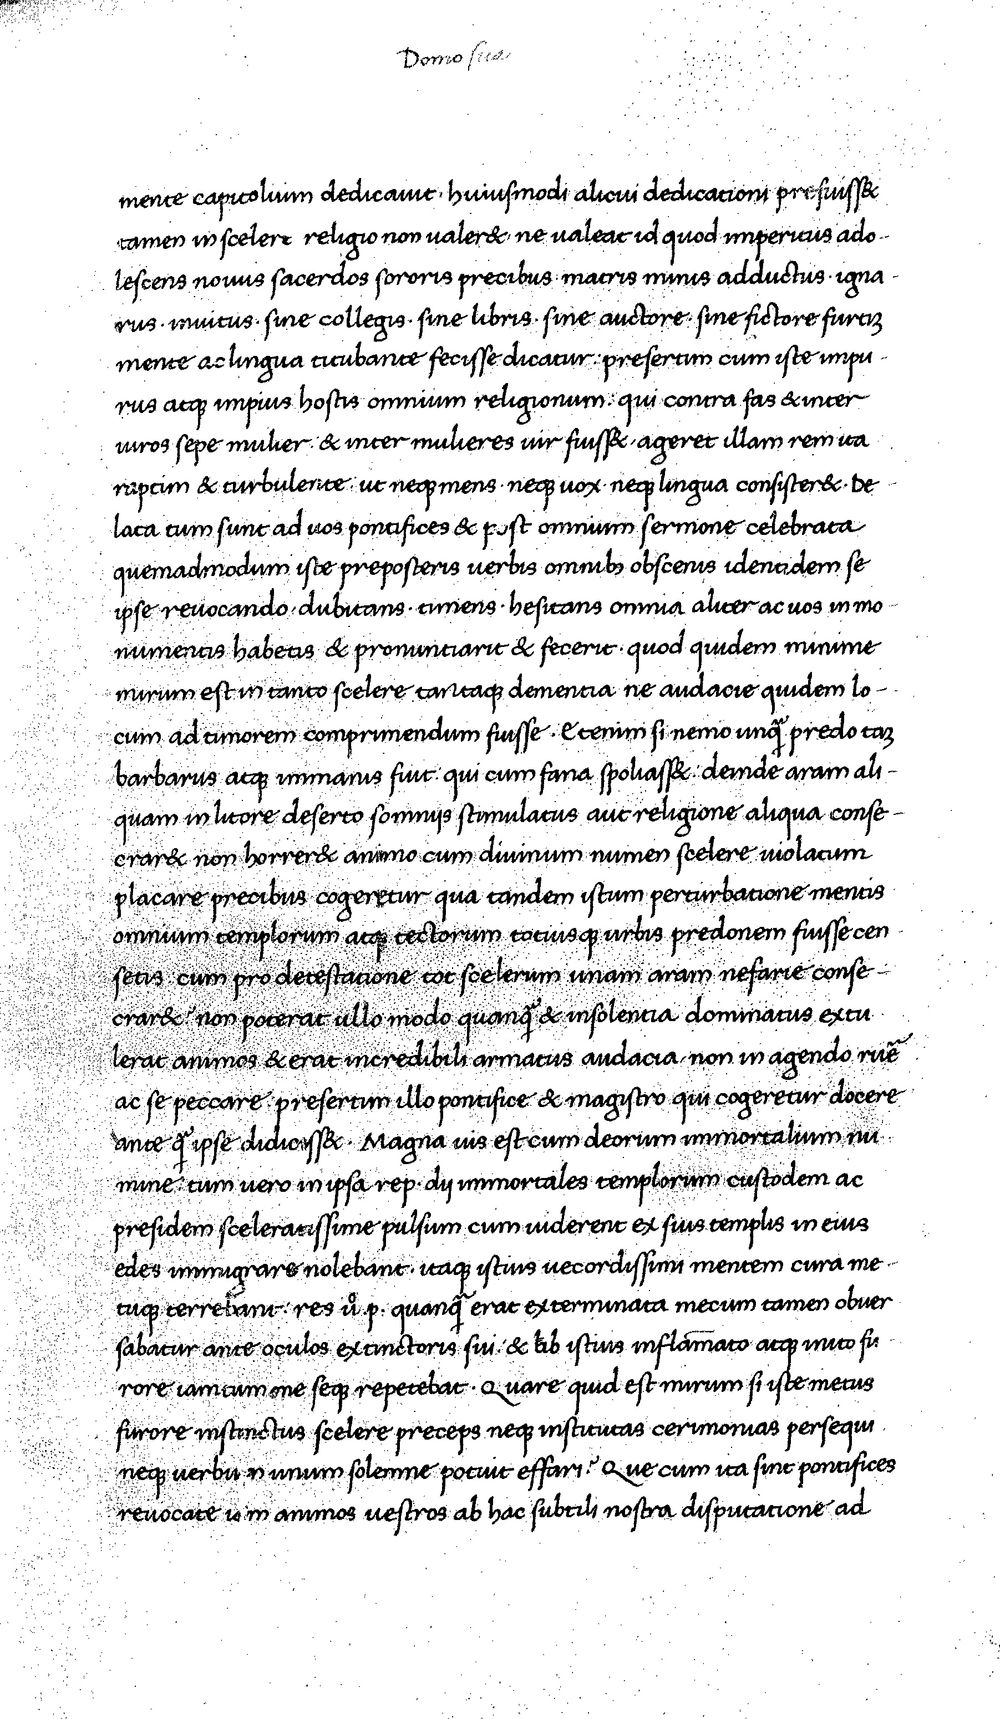 Domo sua
mente capitolium dedicauit · huiusmodi alicui dedicationi prefuiss&
tamen in scelere religio non ualer& · ne ualeat id quod imperitus ado-
lescens nouus sacerdos sororis precibus · matris minis adductus · igna-
rus · inuitus · sine collegis · sine libris · sine auctore · sine fictore furtiꝫ
mente ac lingua titubante fecisse dicatur : presertim cum iste impu-
rus atqꝫ impius hostis omnium religionum : qui contra fas & inter
uiros sepe mulier · & inter mulieres uir fuiss& · ageret illam rem ita
raptim & turbulente : ut neqꝫ mens · neqꝫ uox · neqꝫ lingua consister& · De-
lata tum sunt ad uos pontifices & post omnium sermone celebrata
quemadmodum iste preposteris uerbis omnibꝫ obscenis identidem se
ipse reuocando · dubitans · timens · hesitans omnia aliter ac uos in mo-
numentis habetis & pronuntiarit & fecerit · quod quidem minime
mirum est in tanto scelere tantaqꝫ dementia ne audacie quidem lo-
cum ad timorem comprimendum fuisse · Etenim si nemo unq̃ predo taꝫ
barbarus atqꝫ immanis fuit · qui cum fana spoliass& : deinde aram ali-
quam in litore deserto somnijs stimulatus aut religione aliqua conse-
crar& non horrer& animo cum diuinum numen scelere uiolatum
placare precibus cogeretur qua tandem istum perturbatione mentis
omnium templorum atqꝫ tectorum totiusqꝫ urbis predonem fuisse cen-
setis cum pro detestatione tot scelerum unam aram nefarie conse-
crar& ? non poterat ullo modo quanq̃ & insolentia dominatus extu-
lerat animos & erat incredibili armatus audacia · non in agendo ruẽ
ac se peccare : presertim illo pontifice & magistro qui cogeretur docere
ante q̃ ipse didiciss& · Magna uis est cum deorum immortalium nu-
mine : tum uero in ipsa rep · dij immortales templorum custodem ac
presidem sceleratissime pulsum cum uiderent ex suis templis in eius
edes immigrare nolebant · itaqꝫ istius uecordissimi mentem cura me-
tuqꝫ terrebant : res u̇ · p · quanq̃ erat exterminata mecum tamen obuer
sabatur ante oculos extinctoris sui · & ab istius inflam̄ato atqꝫ inuito fu-
rore iam tum me seqꝫ repetebat · Quare quid est mirum si iste metus
furore instinctus scelere preceps neqꝫ institutas cerimonias persequi
neqꝫ uerbū n unum solemne potuit effari ? Que cum ita sint pontifices
reuocate in animos uestros ab hac subtili nostra disputatione ad